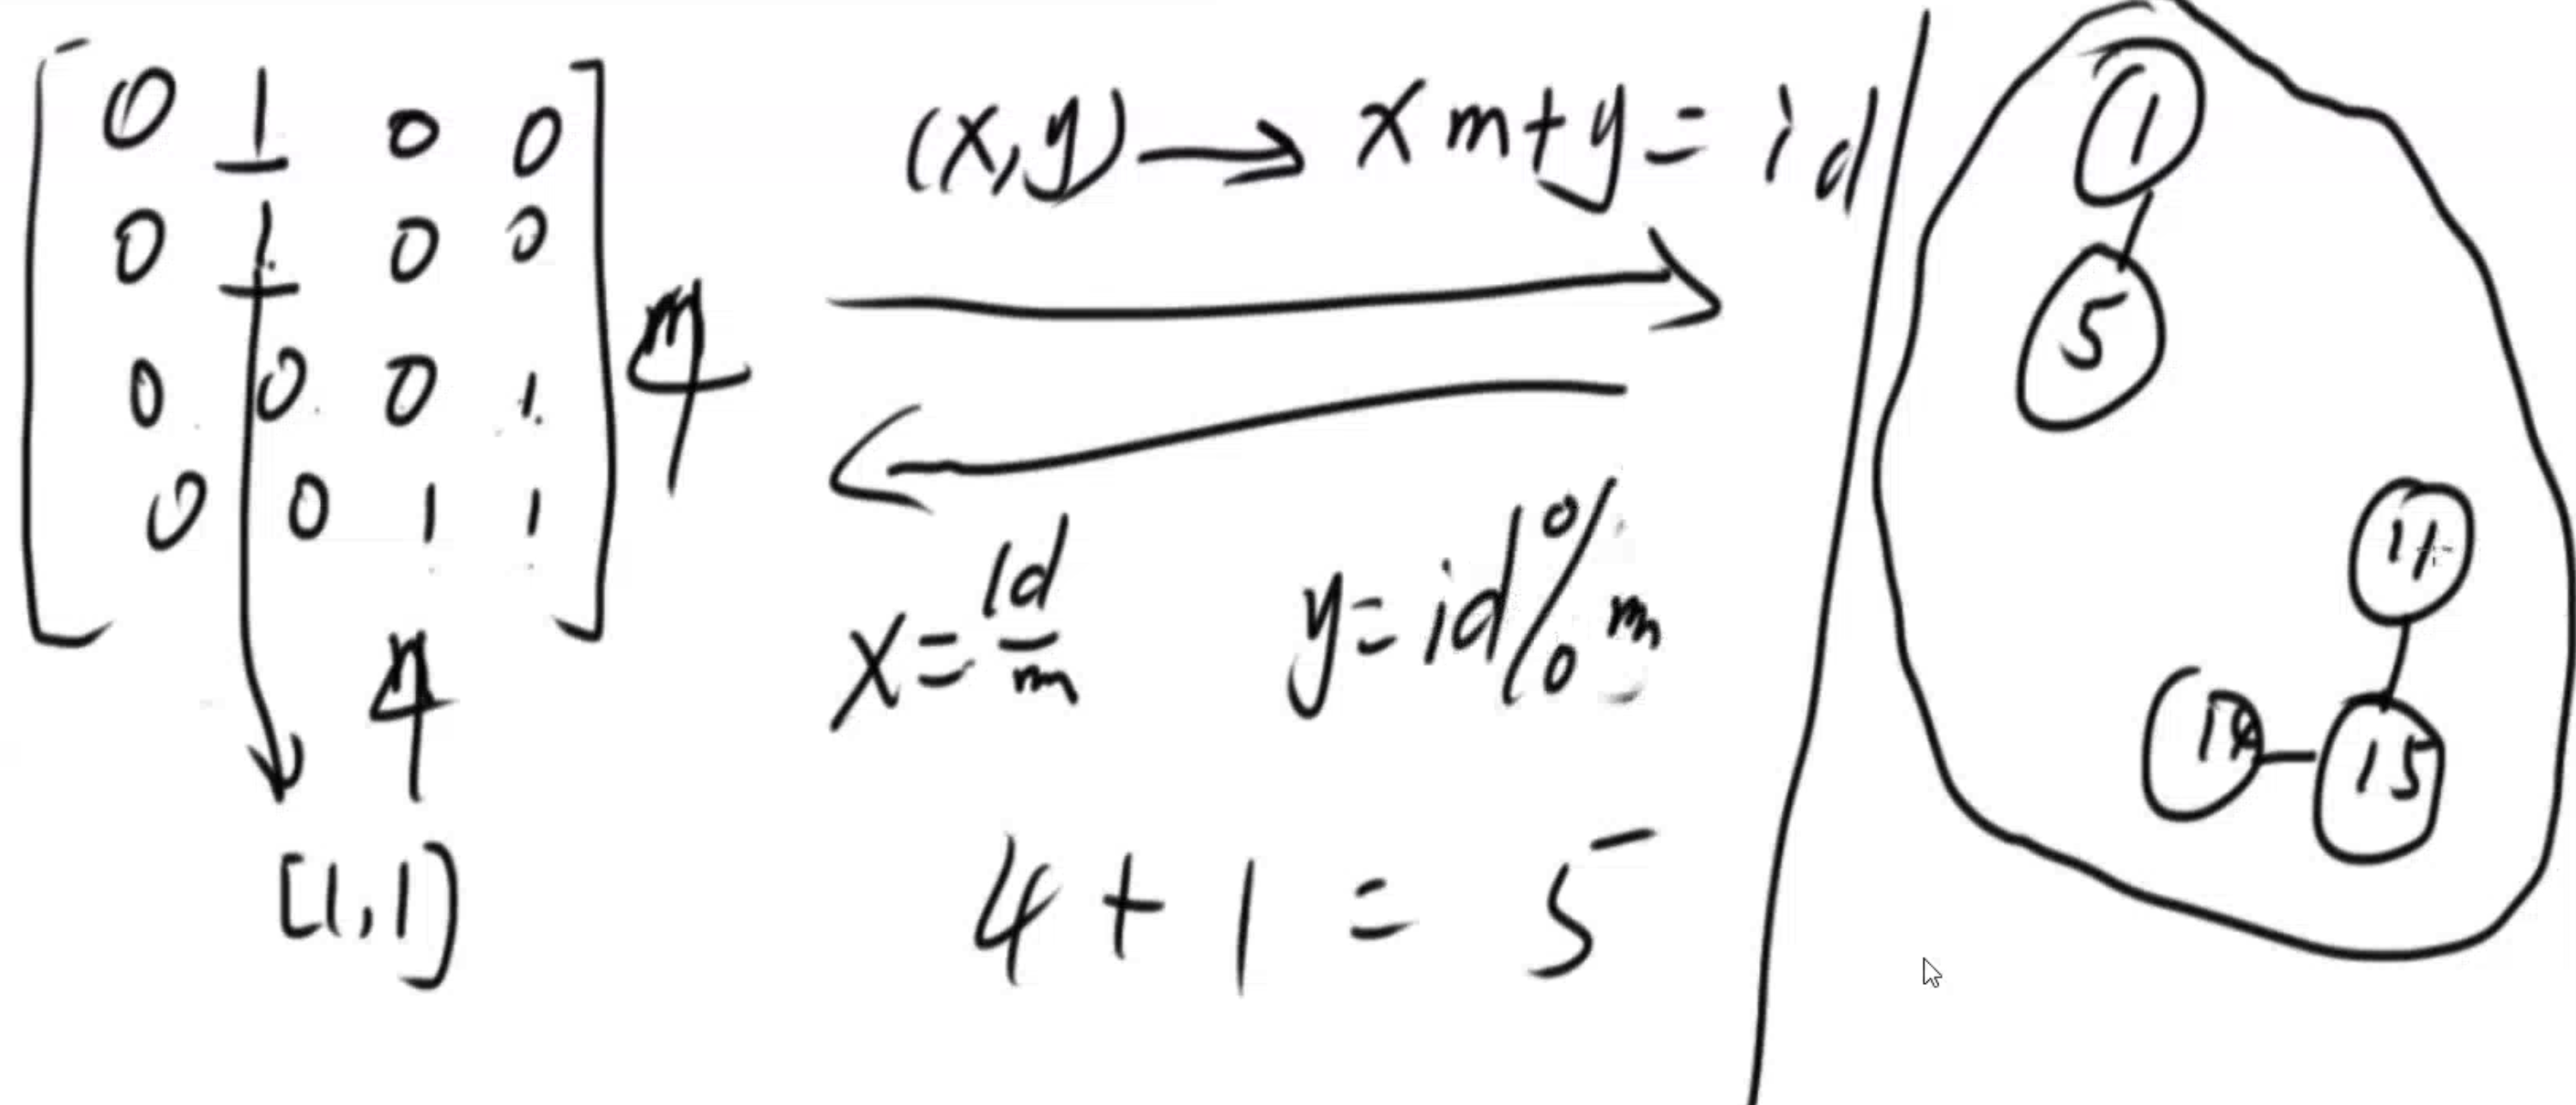 0 1 0 0
0 1 0 0
0 0 0 1
0 0 1 1
4
4
[1,1]
(x,y) → xm+y = id
x = id/m
y = id % m
4 + 1 = 5
1
5
11
14
15